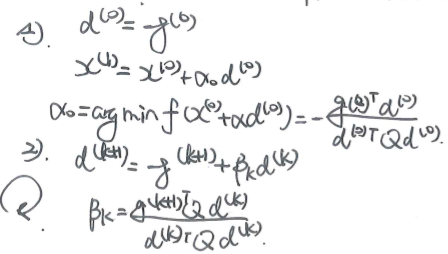 1). d^(0) = -g^(0)
x^(1) = x^(0) + α₀d^(0)
α₀ = arg min f(x^(0) + αd^(0)) = - g^(0)ᵀd^(0) / d^(0)ᵀQd^(0).
2). d^(k+1) = -g^(k+1) + βₖd^(k)
βₖ = g^(k+1)ᵀQd^(k) / d^(k)ᵀQd^(k).